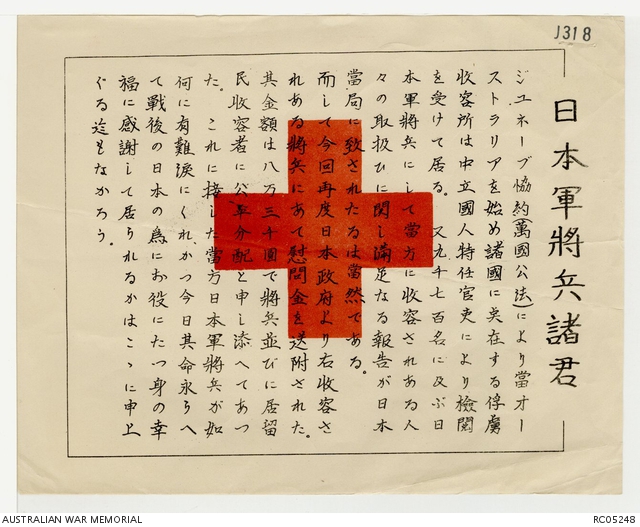 J318
日本軍將兵諸君
ジユネーブ協約(萬國公法)により當オー
ストラリアを始め諸國に点在する俘虜
收容所は中立國人特任官吏により檢閲
を受けて居る。又九千七百名に及ぶ日
本軍將兵にして當方に收容されある人
々の取扱ひに関し滿足なる報告が日本
當局に致されたるは當然である。
而して今回再度日本政府より右收容さ
れある將兵にあて慰問金を送附された。
其金額は八万三千圓で將兵並びに居留
民收容者に公平分配と申し添へてあつ
た。これに接した當方日本軍將兵が如
何に有難涙にくれかつ今日其命永らへ
て戰後の日本の為にお役にたつ身の幸
福に感謝して居られるかはこゝに申上
ぐる迄もなかろう。
AUSTRALIAN WAR MEMORIAL
RC05248